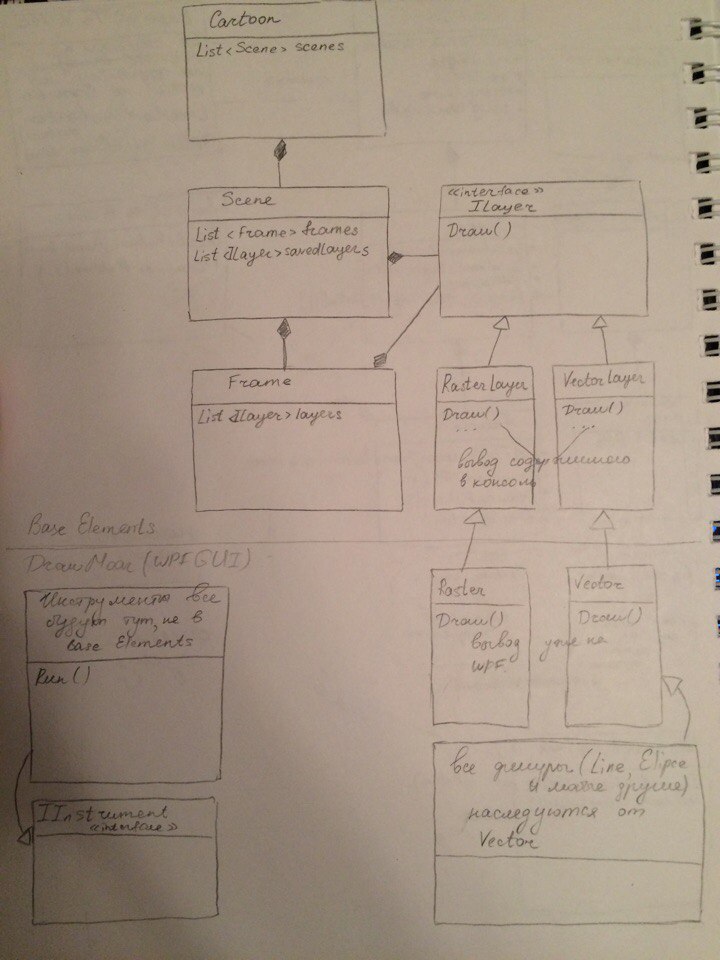 Cartoon
List<Scene> scenes
Scene
List <Frame> frames
List <Ilayer> savedlayers
<<interface>>
Ilayer
Draw()
Frame
List <Ilayer> layers
RasterLayer
Draw()
...
VectorLayer
Draw()
...
вывод содержимого
в консоль
Base Elements
DrawMoar (WPF GUI)
Инструменты все
будут тут, не в
base Elements
Run()
IInstrument
<<interface>>
Raster
Draw()
Vector
Draw()
вывод уже на
WPF.
все фигуры (Line, Elipse
и другие)
наследуются от
Vector